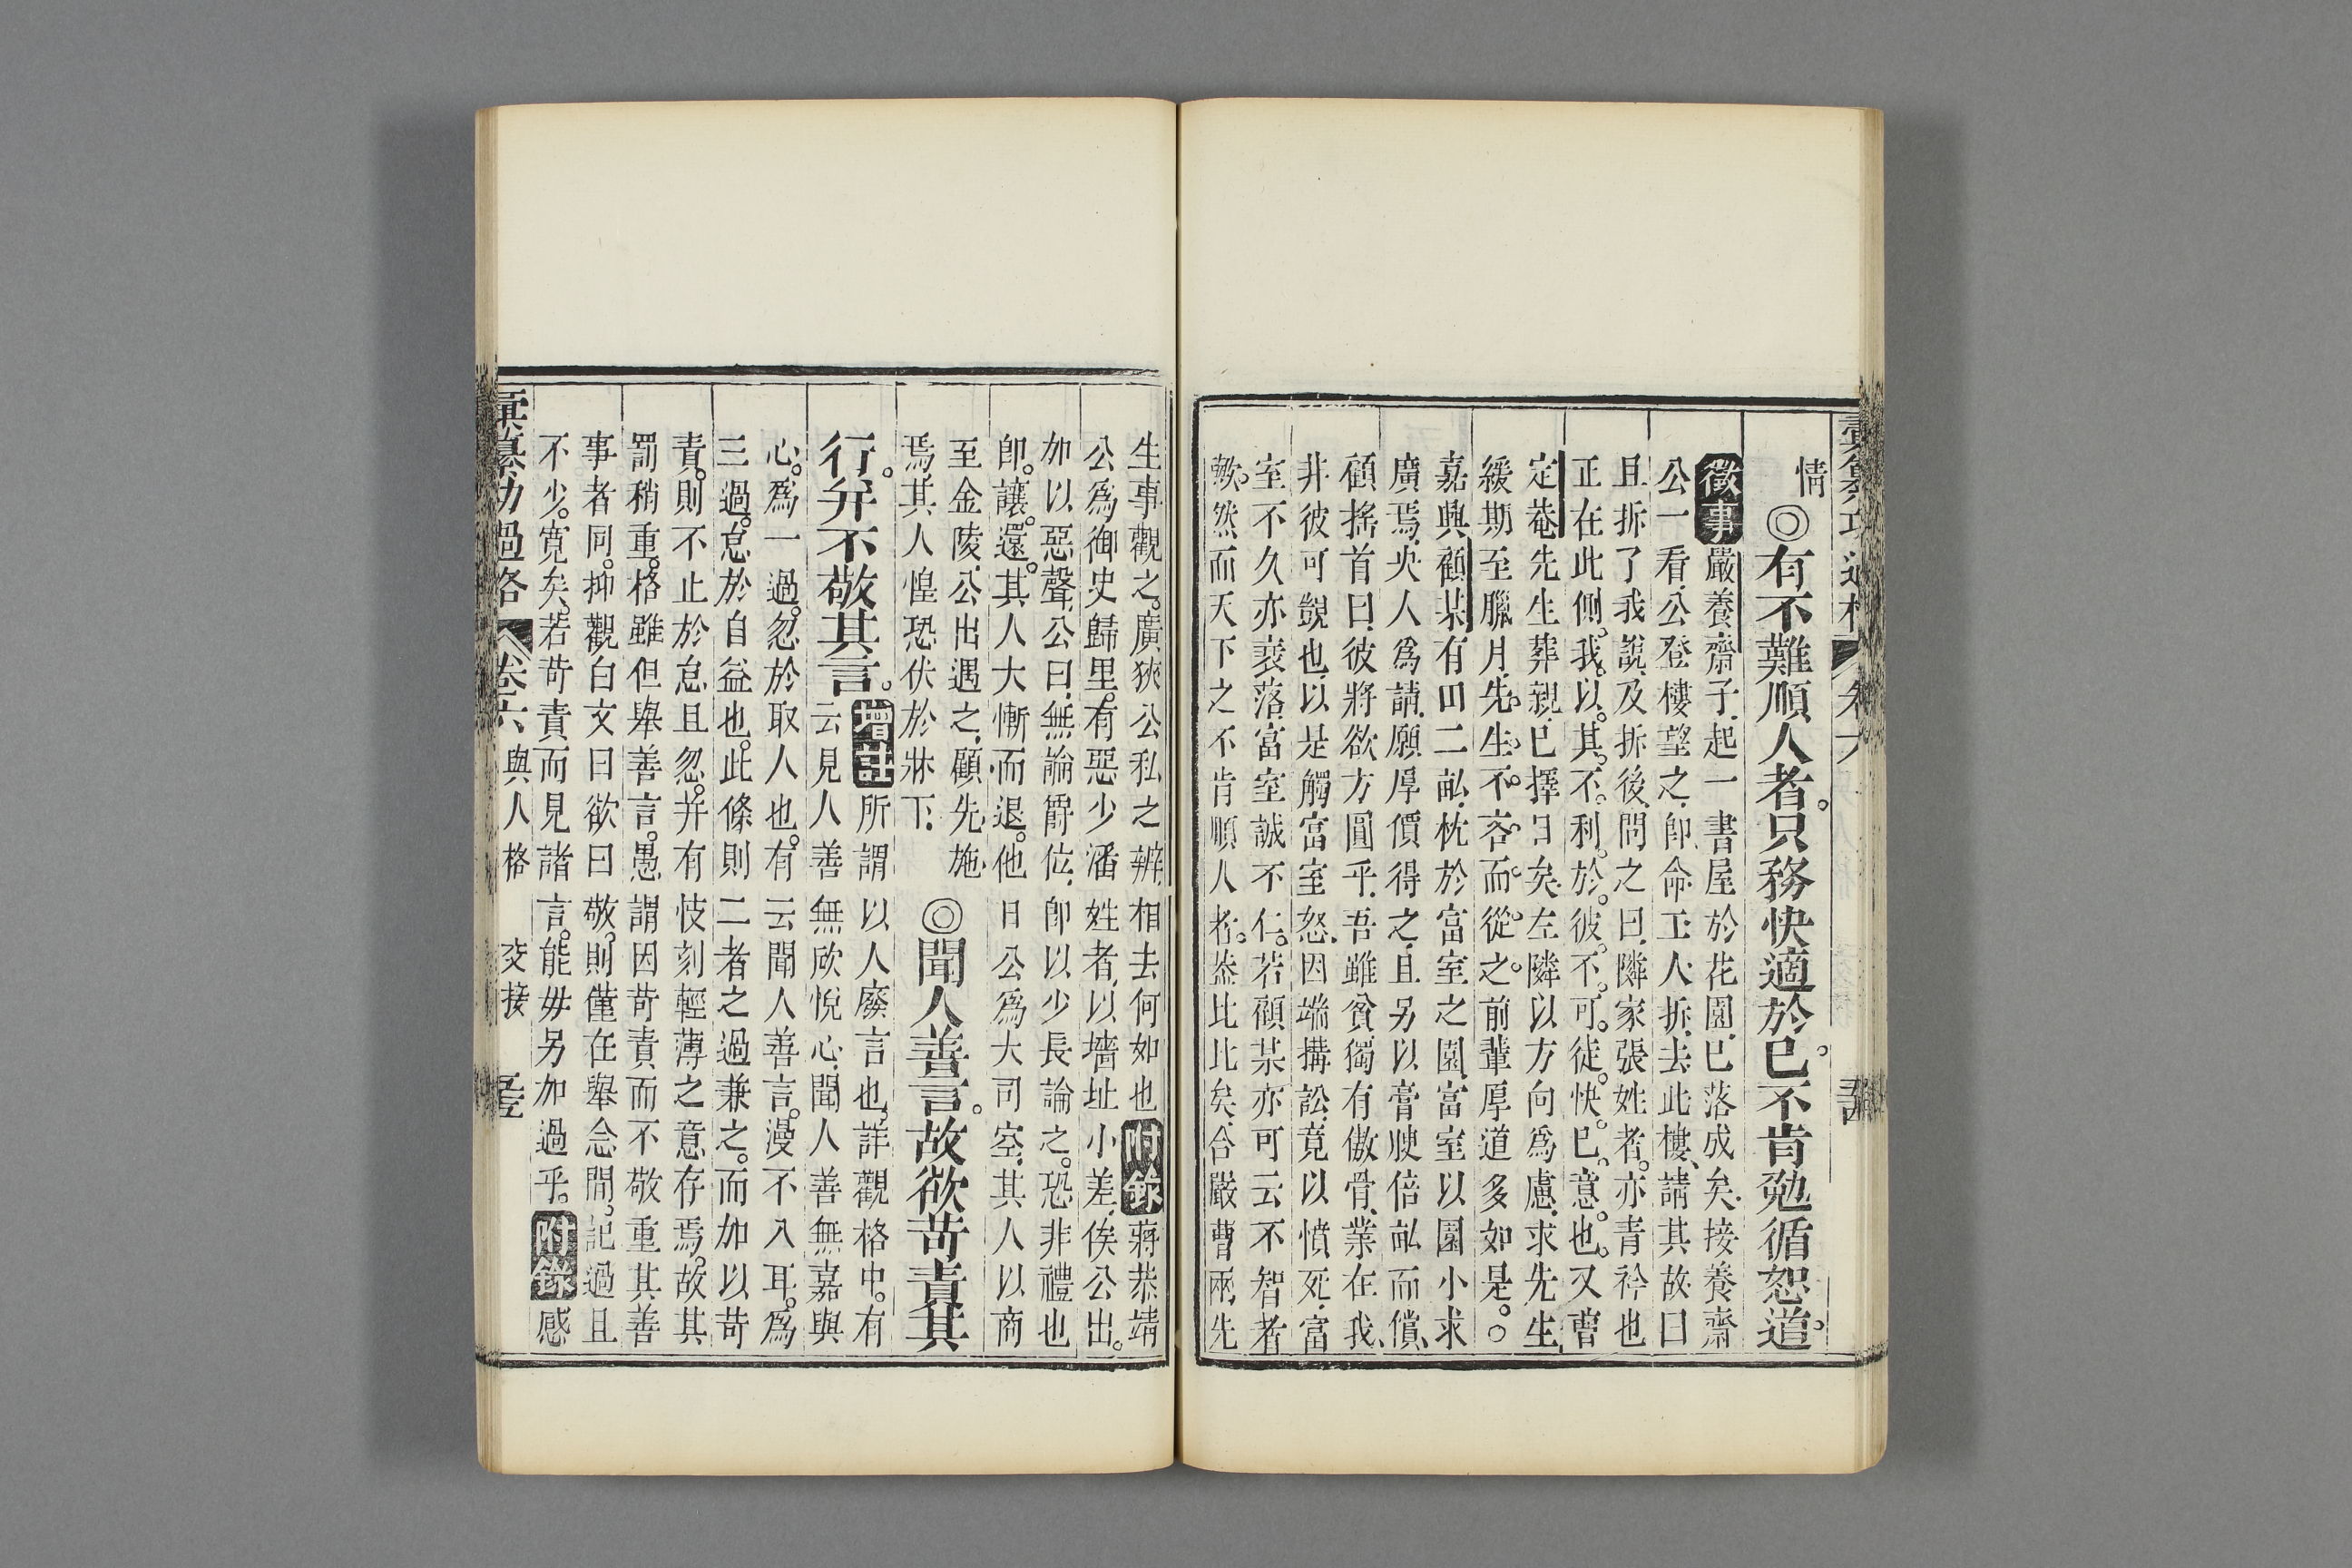 情
◎有不難順人者。只務快適於己。不肯勉循恕道。
徵事嚴養齋子。起一書屋於花園。已落成矣。接養齋
公一看。公登樓望之。卽命工人拆去此樓、請其故曰
且拆了我說。及拆後。問之曰。隣家張姓者。亦青衿也
正在此側。我。以。其。不。利。於。彼。不。可。徒。快。己。意。也。又曹
定菴先生葬親。已擇日矣。左隣以方向爲慮。求先生
緩期至臘月。先。生。不。吝。而。從。之。前輩厚道多如是。○
嘉興顧某有田二畝。枕於富室之園。富室以園小求
廣焉。央人爲請。願厚價得之。且另以膏腴倍畝而償、
顧搖首曰。彼將欲方圓乎。吾雖貧。獨有傲骨。業在我、
非彼可覬也。以是觸富室怒。因端搆訟。竟以憤死。富
室不久亦衰落。富室誠不仁。若顧某亦可云不智者
歟。然而天下之不肯順人者。葢比比矣。合嚴曹兩先
生事觀之。廣狹公私之辨。相去何如也附錄蔣恭靖
公爲御史歸里。有惡少潘姓者。以墻址小差。俟公出。
加以惡聲。公曰。無論爵位。卽以少長論之。恐非禮也
卽。讓。還。其人大慚而退。他日公爲大司空。其人以商
至金陵。公出遇之。顧先施
焉。其人惶恐伏於牀下。
◎聞人善言。故欲苛責其
行。并不敬其言。
增註所謂以人廢言也。詳觀格中。有
云見人善無欣悅心。聞人善無嘉與
心。爲一過。忽於取人也。有云聞人善言。漫不入耳。爲
三過。怠於自益也。此條則二者之過兼之。而加以苛
責。則不止於怠且忽。并有忮刻輕薄之意存焉。故其
罰稍重。格雖但舉善言。愚謂因苛責而不敬重其善
事者同。抑觀白文曰欲曰敬。則僅在舉念間。記過且
不少。寬矣。若苛責而見諸言。能毋另加過乎。附錄感
彙纂功過格 卷六 與人格 交接